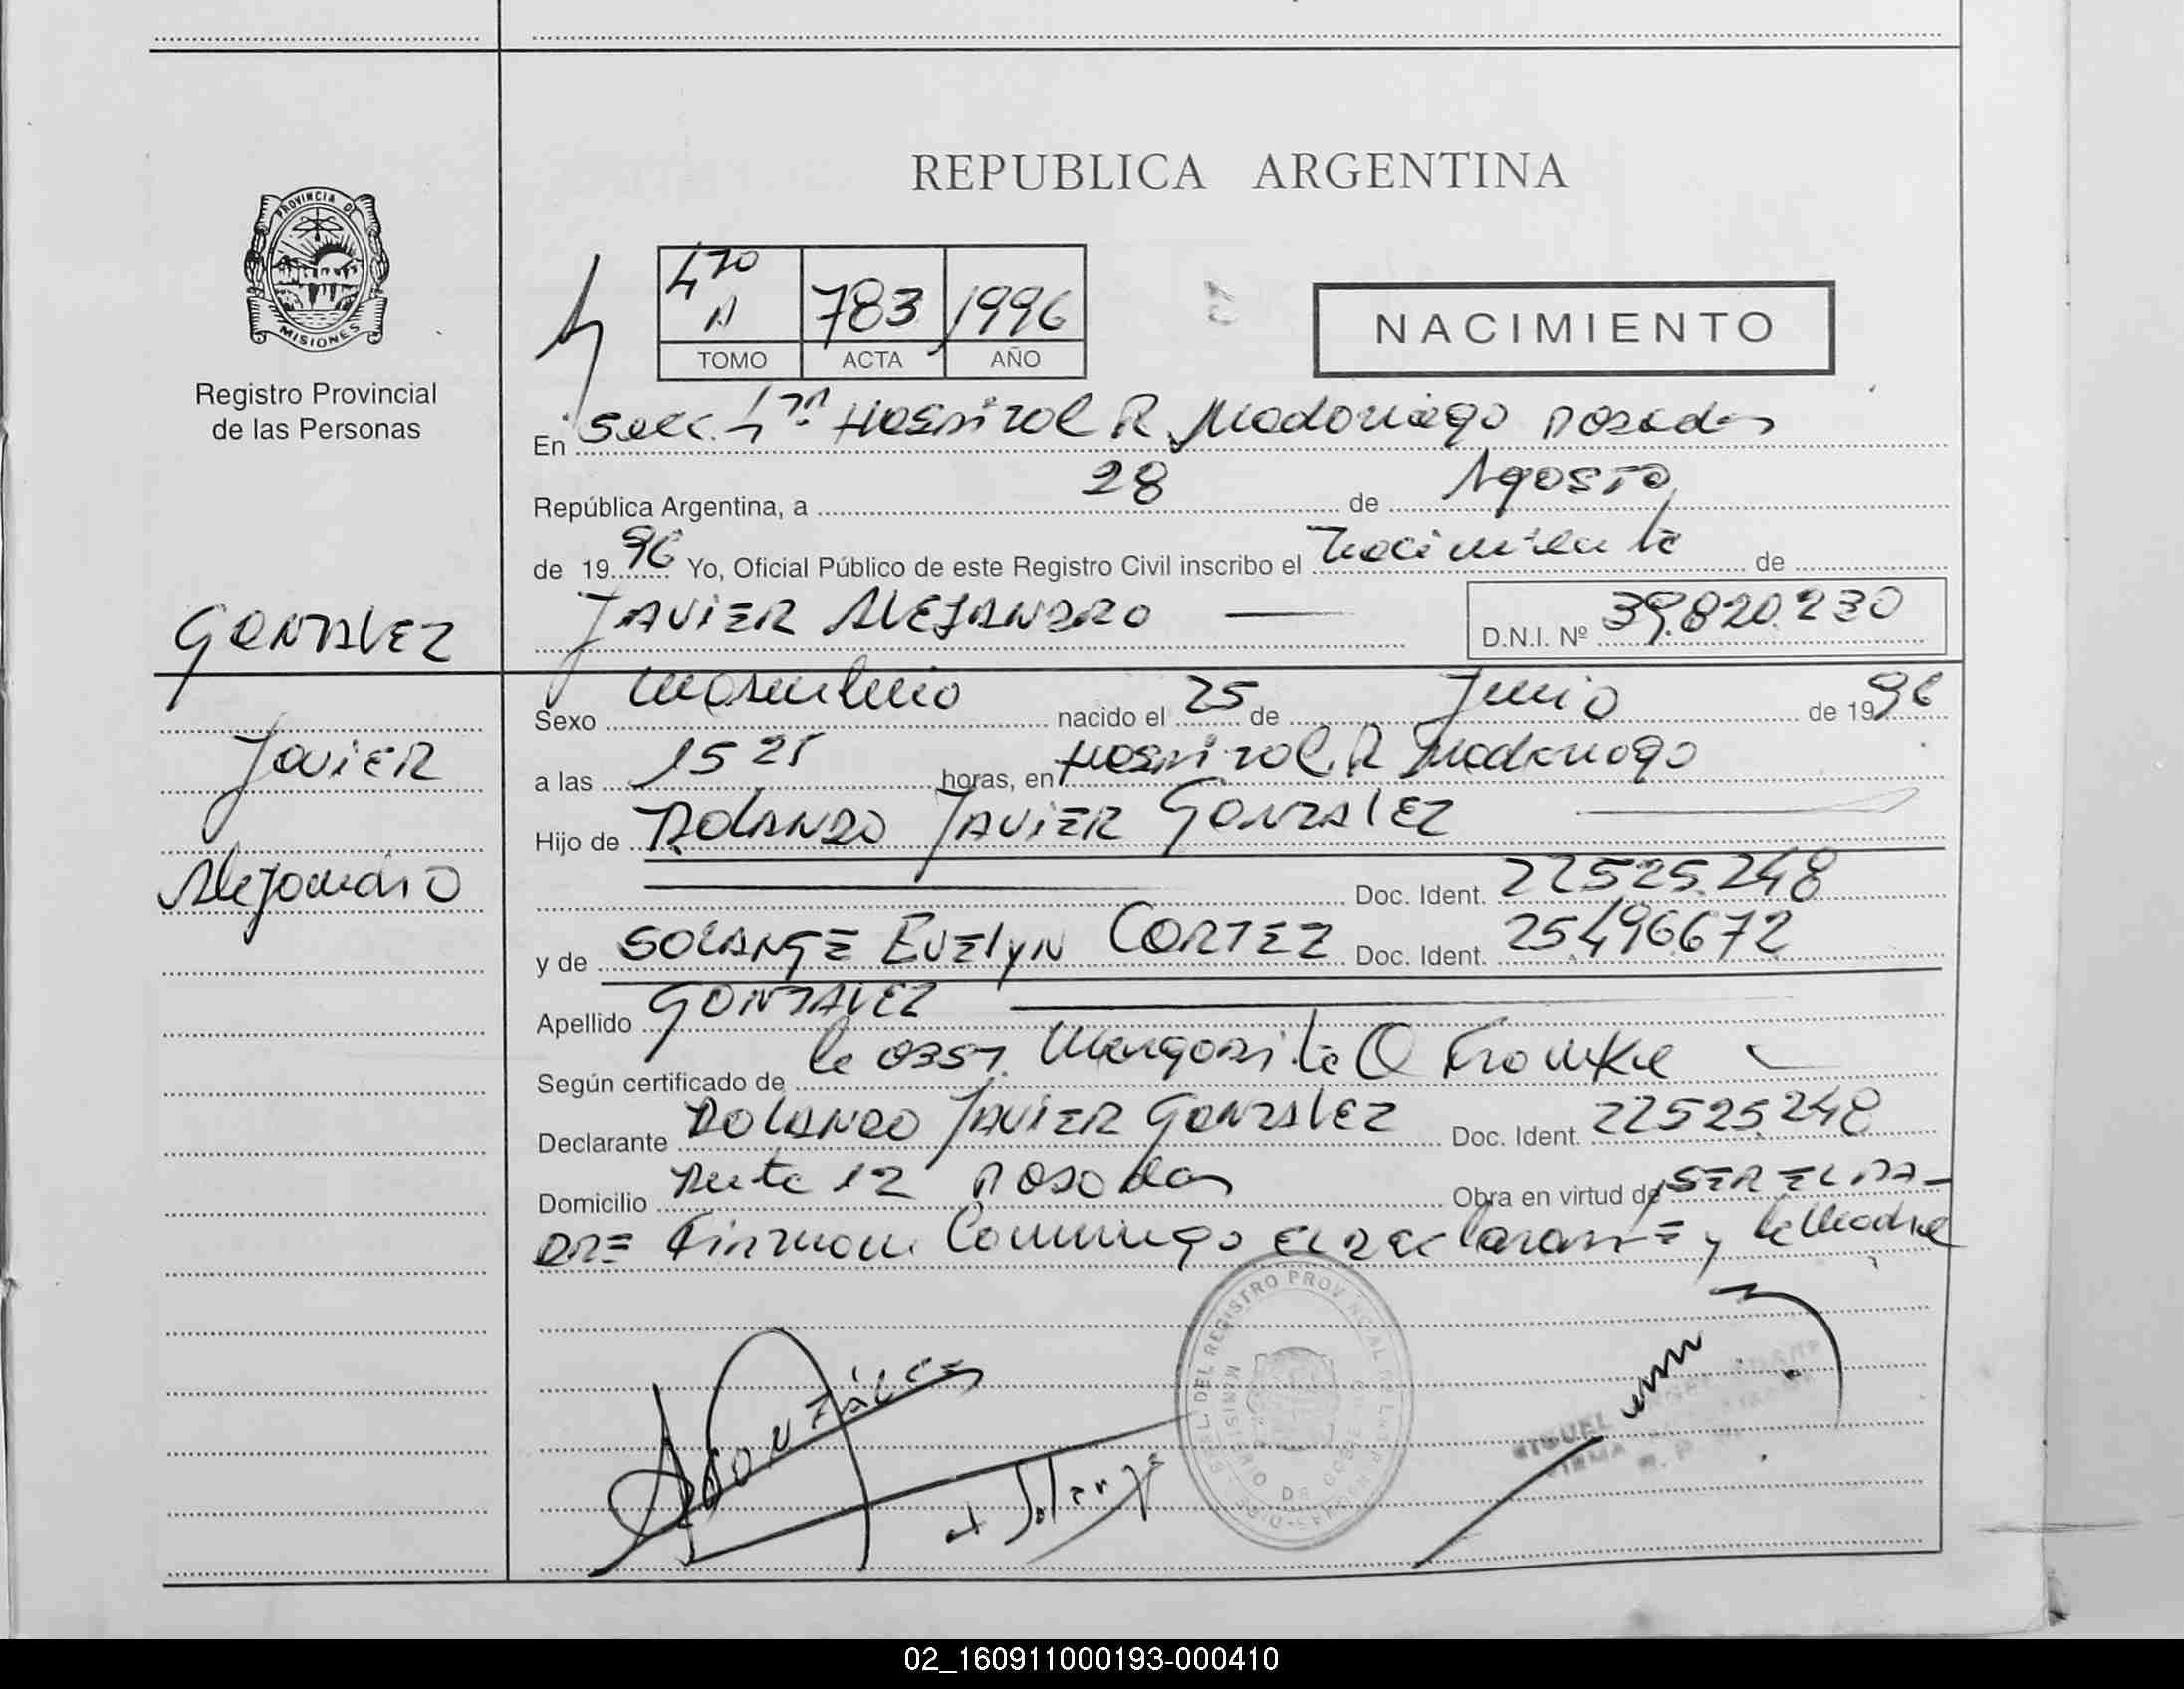 REPUBLICA ARGENTINA
PROVINCIA DE
MISIONES
Registro Provincial
de las Personas
4to
A
783
1996
TOMO
ACTA
AÑO
NACIMIENTO
En Secc. 4ta Hospital R. Madariaga Posadas
República Argentina, a 28 de Agosto
de 1996 Yo, Oficial Público de este Registro Civil inscribo el nacimiento de
JAVIER ALEJANDRO D.N.I. Nº 39.820.230
GONZALEZ
Javier
Alejandro
Sexo masculino nacido el 25 de Junio de 1996
a las 15 25 horas, en Hospital R. Madariaga
Hijo de ROLANDO JAVIER GONZALEZ
Doc. Ident. 22525.248
y de SOLANGE EVELYN CORTEZ Doc. Ident. 25496672
Apellido GONZALEZ
Según certificado de la obst. Margarita
Declarante ROLANDO JAVIER GONZALEZ Doc. Ident. 22525.248
Domicilio Ruta 12 Posadas Obra en virtud de SER EL PA-
DRE Firman Conmigo el declarante y la Madre
Gonzáles
Solange
DEL REGISTRO PROVINCIAL DE LAS PERSONAS
MINISTERIO DE GOBIERNO
MIGUEL
FIRMA
02_160911000193-000410